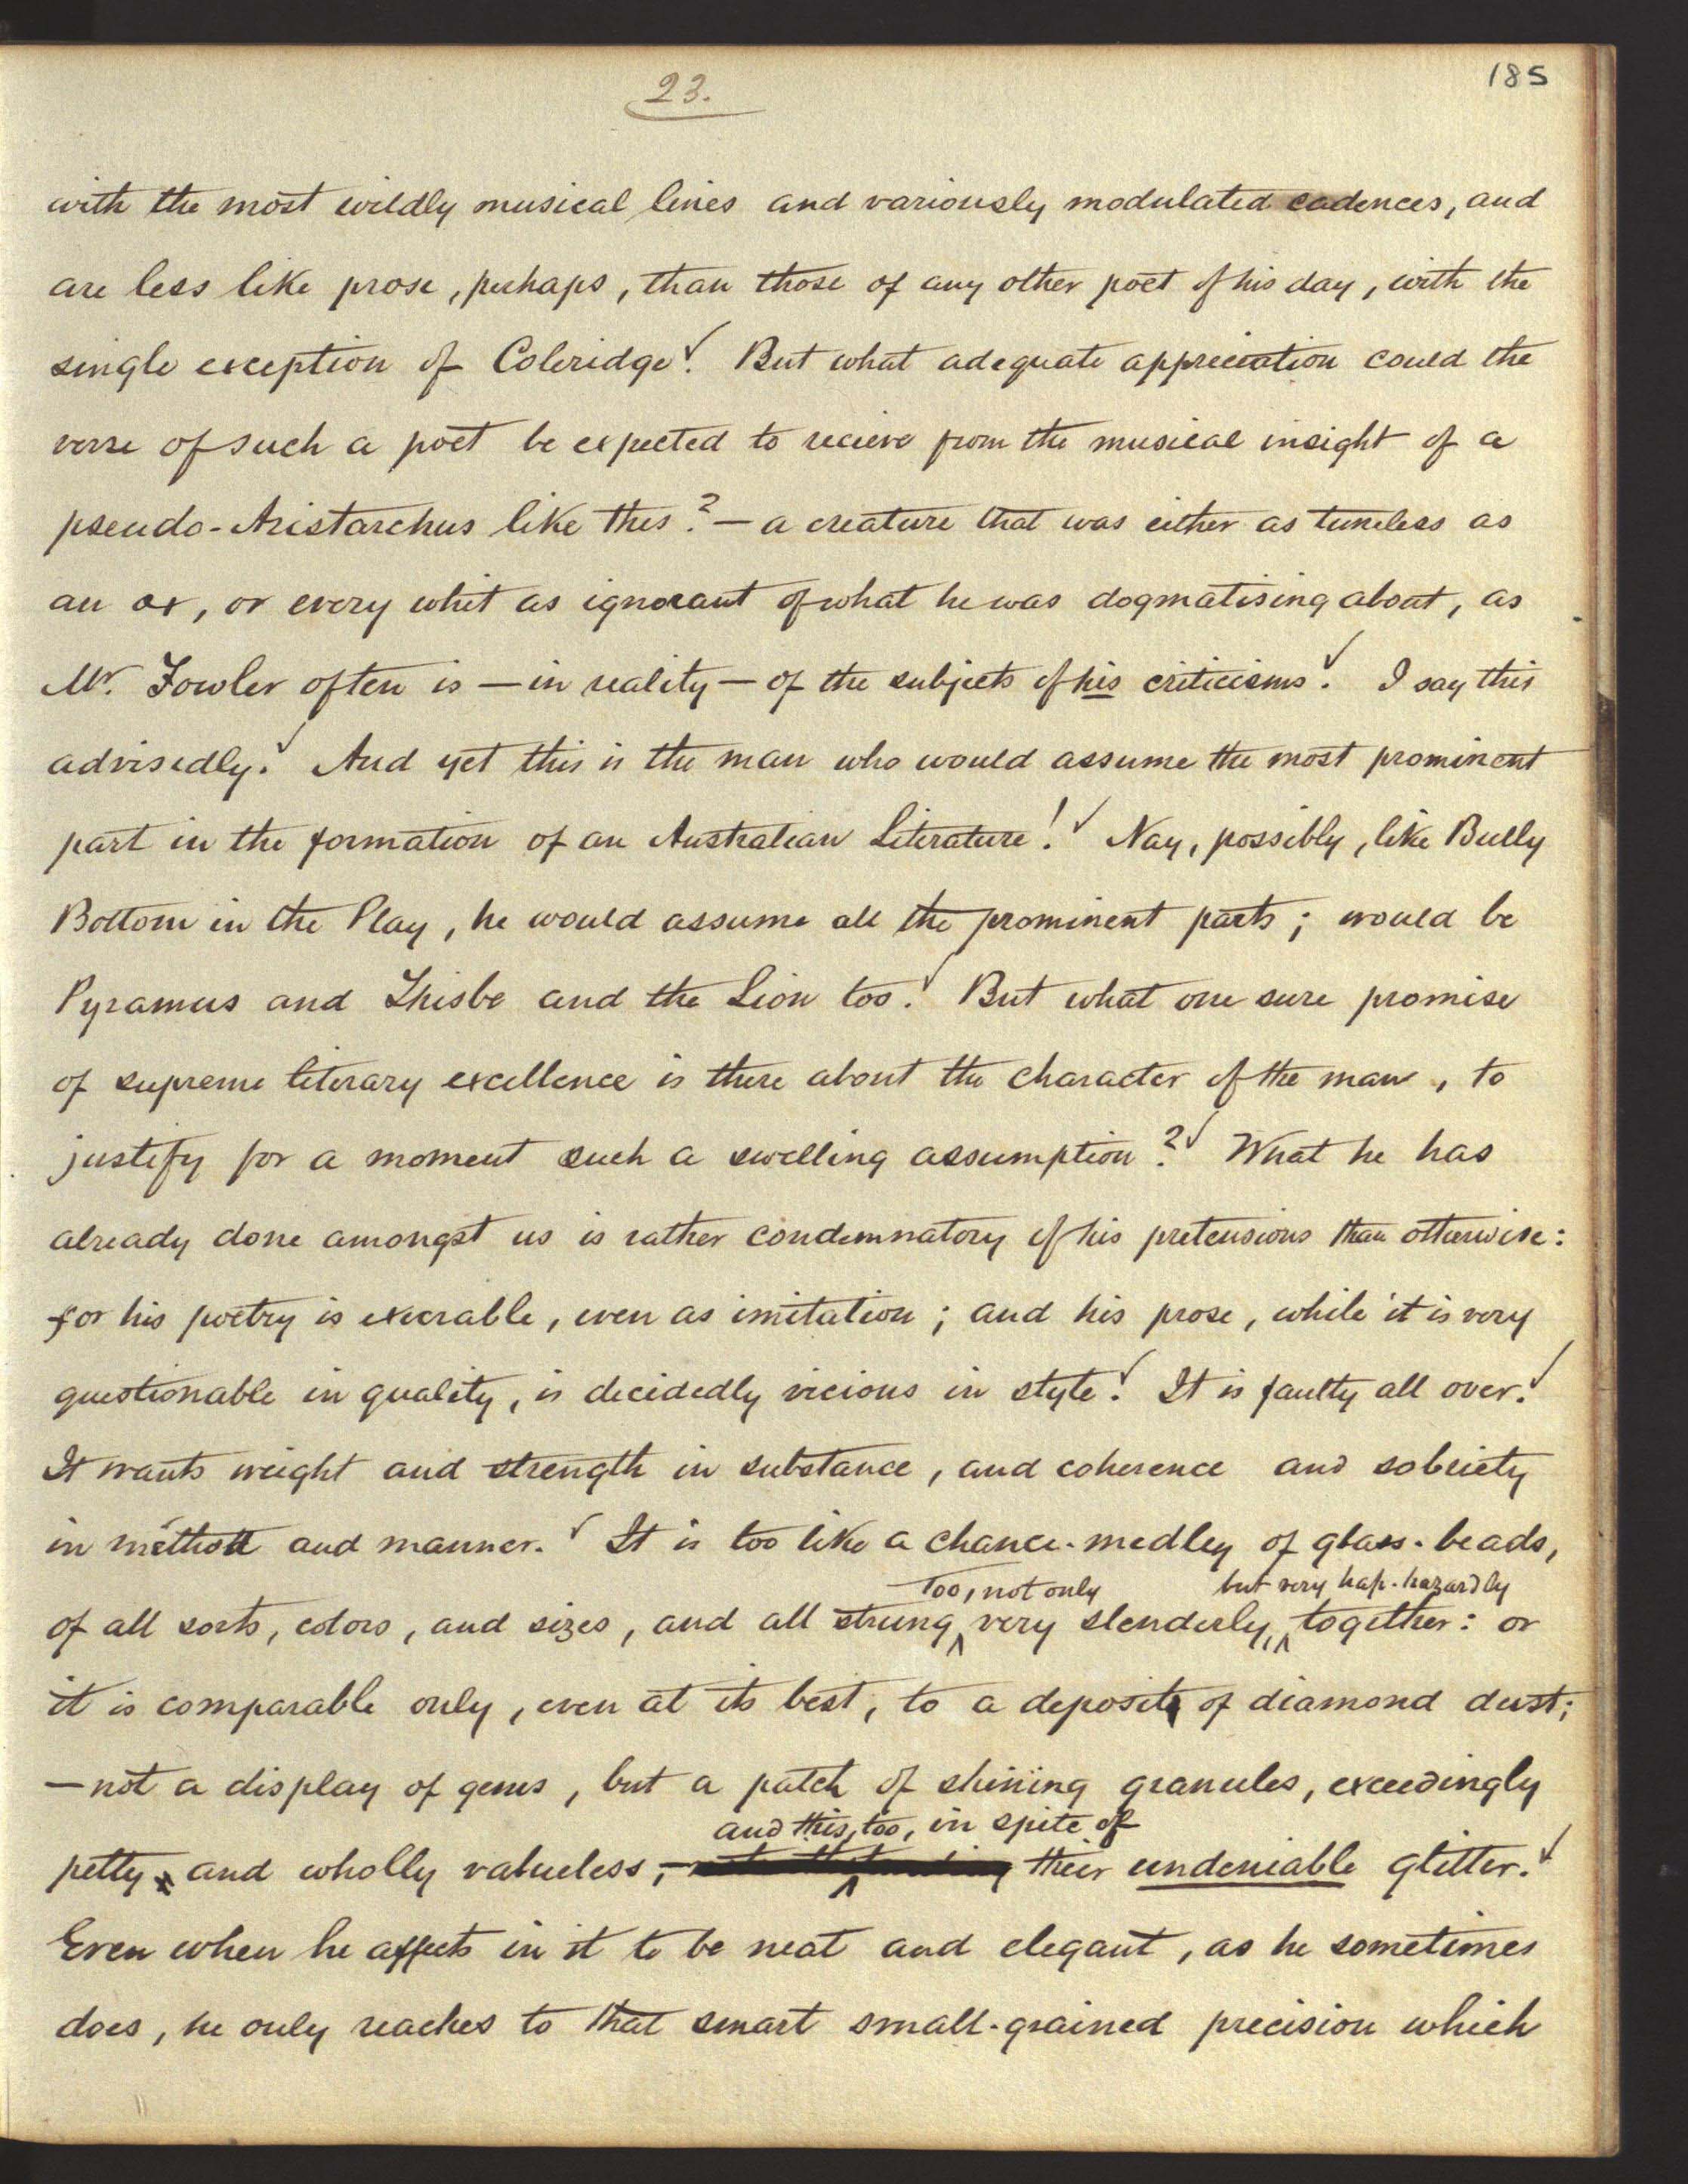 23.
185
with the most wildly musical lines and variously modulated cadences, and
are less like prose, perhaps, than those of any other poet of his day, with the
single exception of Coleridge. But what adequate appreciation could the
verse of such a poet be expected to recieve from the musical insight of a
pseudo-Aristarchus like this?—a creature that was either as tuneless as
an ox, or every whit as ignorant of what he was dogmatising about, as
Mr. Fowler often is—in reality—of the subjects of his criticisms. I say this
advisedly. And yet this is the man who would assume the most prominent
part in the formation of an Australian Literature! Nay, possibly, like Bully
Bottom in the Play, he would assume all the prominent parts; would be
Pyramus and Thisbe and the Lion too. But what one sure promise
of supreme literary excellence is there about the character of the man, to
justify for a moment such a swelling assumption? What he has
already done amongst us is rather condemnatory of his pretensions than otherwise:
for his poetry is execrable, even as imitation; and his prose, while it is very
questionable in quality, is decidedly vicious in style. It is faulty all over.
It wants weight and strength in substance, and coherence and sobriety
in method and manner. It is too like a chance-medley of glass-beads,
too, not only but very hap-hazardly
of all sorts, colors, and sizes, and all strung very slenderly, together: or
it is comparable only, even at its best, to a deposit of diamond dust;
—not a display of gems, but a patch of shining granules, exceedingly
and this, too, in spite of
petty and wholly valueless,— their undeniable glitter.
Even when he affects in it to be neat and elegant, as he sometimes
does, he only reaches to that smart small-grained precision which